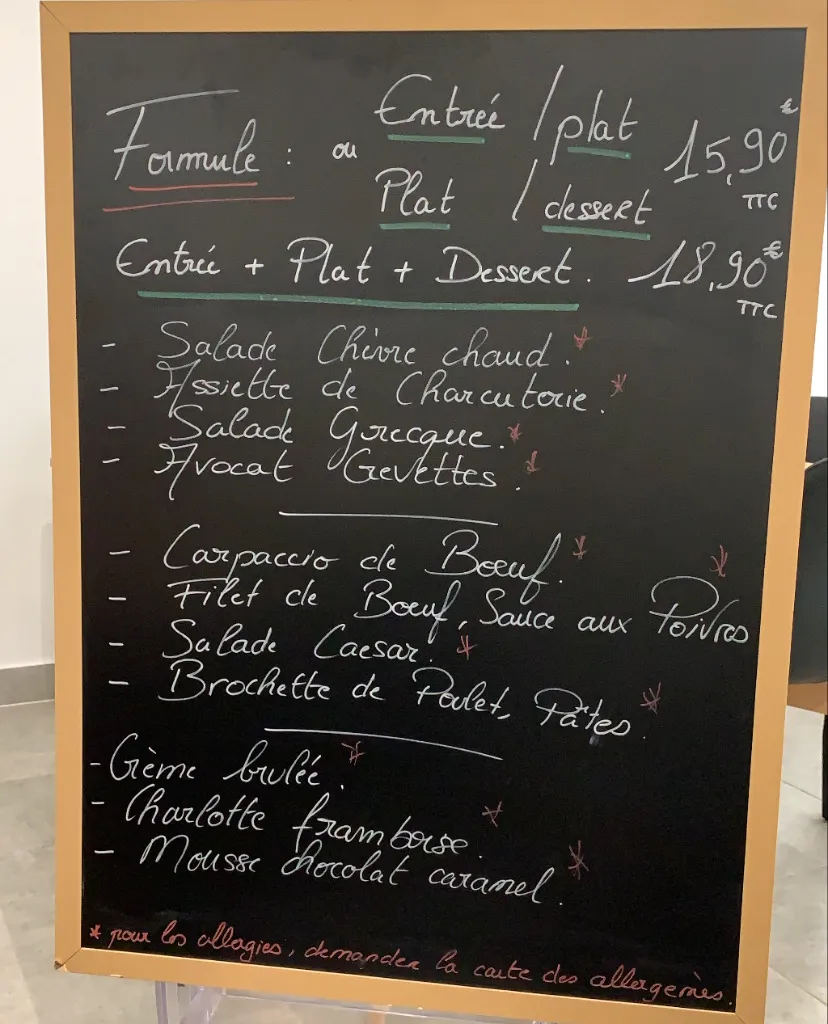 Formule : ou Entrée / plat 15,90 € TTC
Plat / dessert
Entrée + Plat + Dessert. 18,90 € TTC
- Salade Chèvre chaud. *
- Assiette de Charcuterie. *
- Salade Grecque. *
- Avocat Crevettes. *
- Carpaccio de Boeuf. *
- Filet de Boeuf, Sauce aux Poivres *
- Salade Caesar. *
- Brochette de Poulet, Pâtes. *
- Crème brulée. *
- Charlotte framboise. *
- Mousse chocolat caramel. *
* pour les allergies, demander la carte des allergenes.